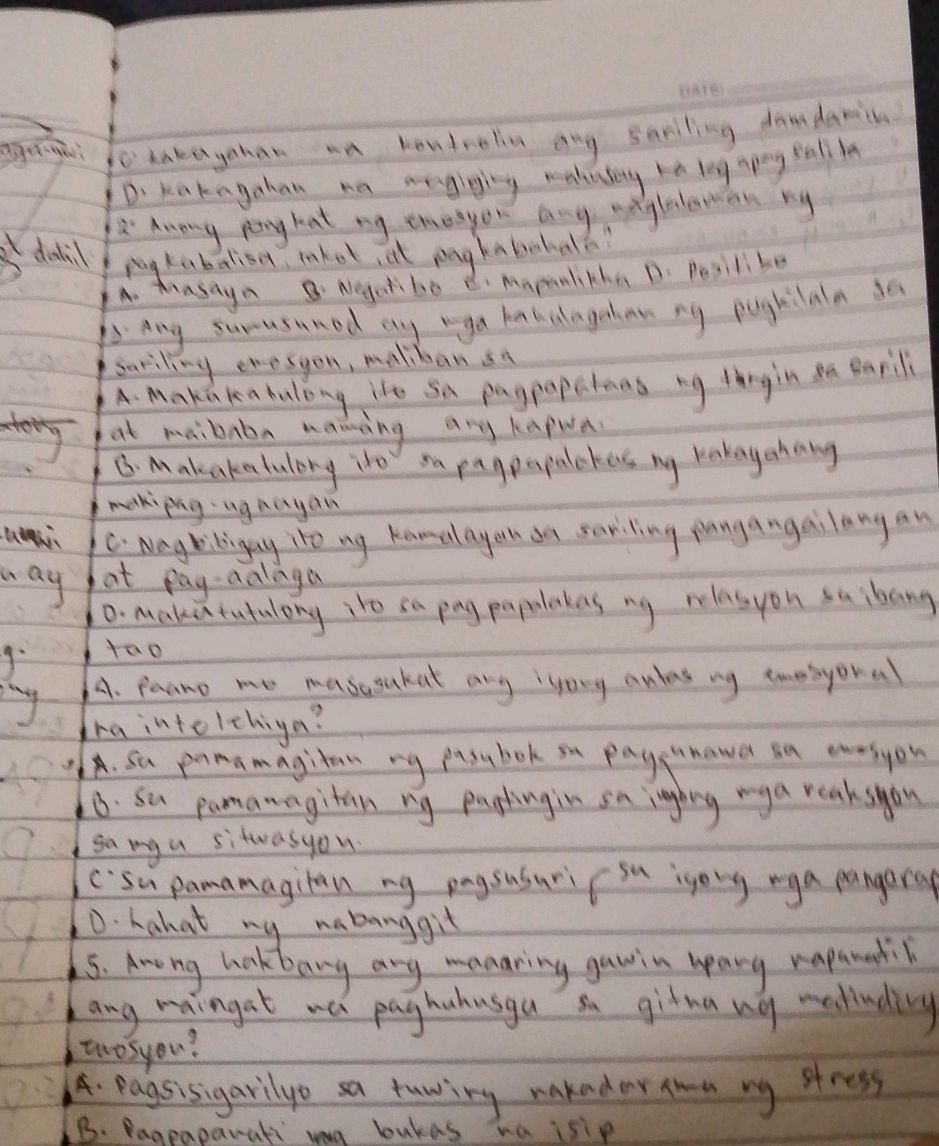 DATE:
C. kakayahan na kontrolin ang sariling damdamin
D. kakagahan na magiging mahusay na tagapagsalita
2. Anong pangkat ng emosyon ang naglalaman ng
pagkabalisa, takot, at pagkabahala?
A. Masaya B. Negatibo C. Mapanlikha D. Positibo
3. Ang sumusunod ay mga kahalagahan ng pagkilala sa
sariling emosyon, maliban sa
A. Makakatulong ito sa pagpapataas ng tingin sa sarili
at maibaba namang ang kapwa.
B. Makakatulong ito sa pagpapalakas ng kakayahang
makipag-ugnayan
C. Nagbibigay ito ng kamalayan sa sariling pangangailangan
ay at pag-aalaga
D. makatutulong ito sa pagpapalakas ng relasyon sa ibang
tao
4. Paano mo masusukat ang iyong antas ng emosyonal
na intelehiya?
A. Sa pamamagitan ng pasubok sa pag-unawa sa emosyon
B. Sa pamamagitan ng pagtingin sa iyong mga reaksyon
sa mga sitwasyon.
C. Sa pamamagitan ng pagsusuri sa iyong mga pangarap
D. Lahat ng nabanggit
5. Anong hakbang ang maaaring gawin upang mapanatili
ang maingat na paghuhusga sa gitna ng matinding
emosyon?
A. Pagsisigarilyo sa tuwing nakadarama ng stress
B. Pagpapanati ng bukas na isip